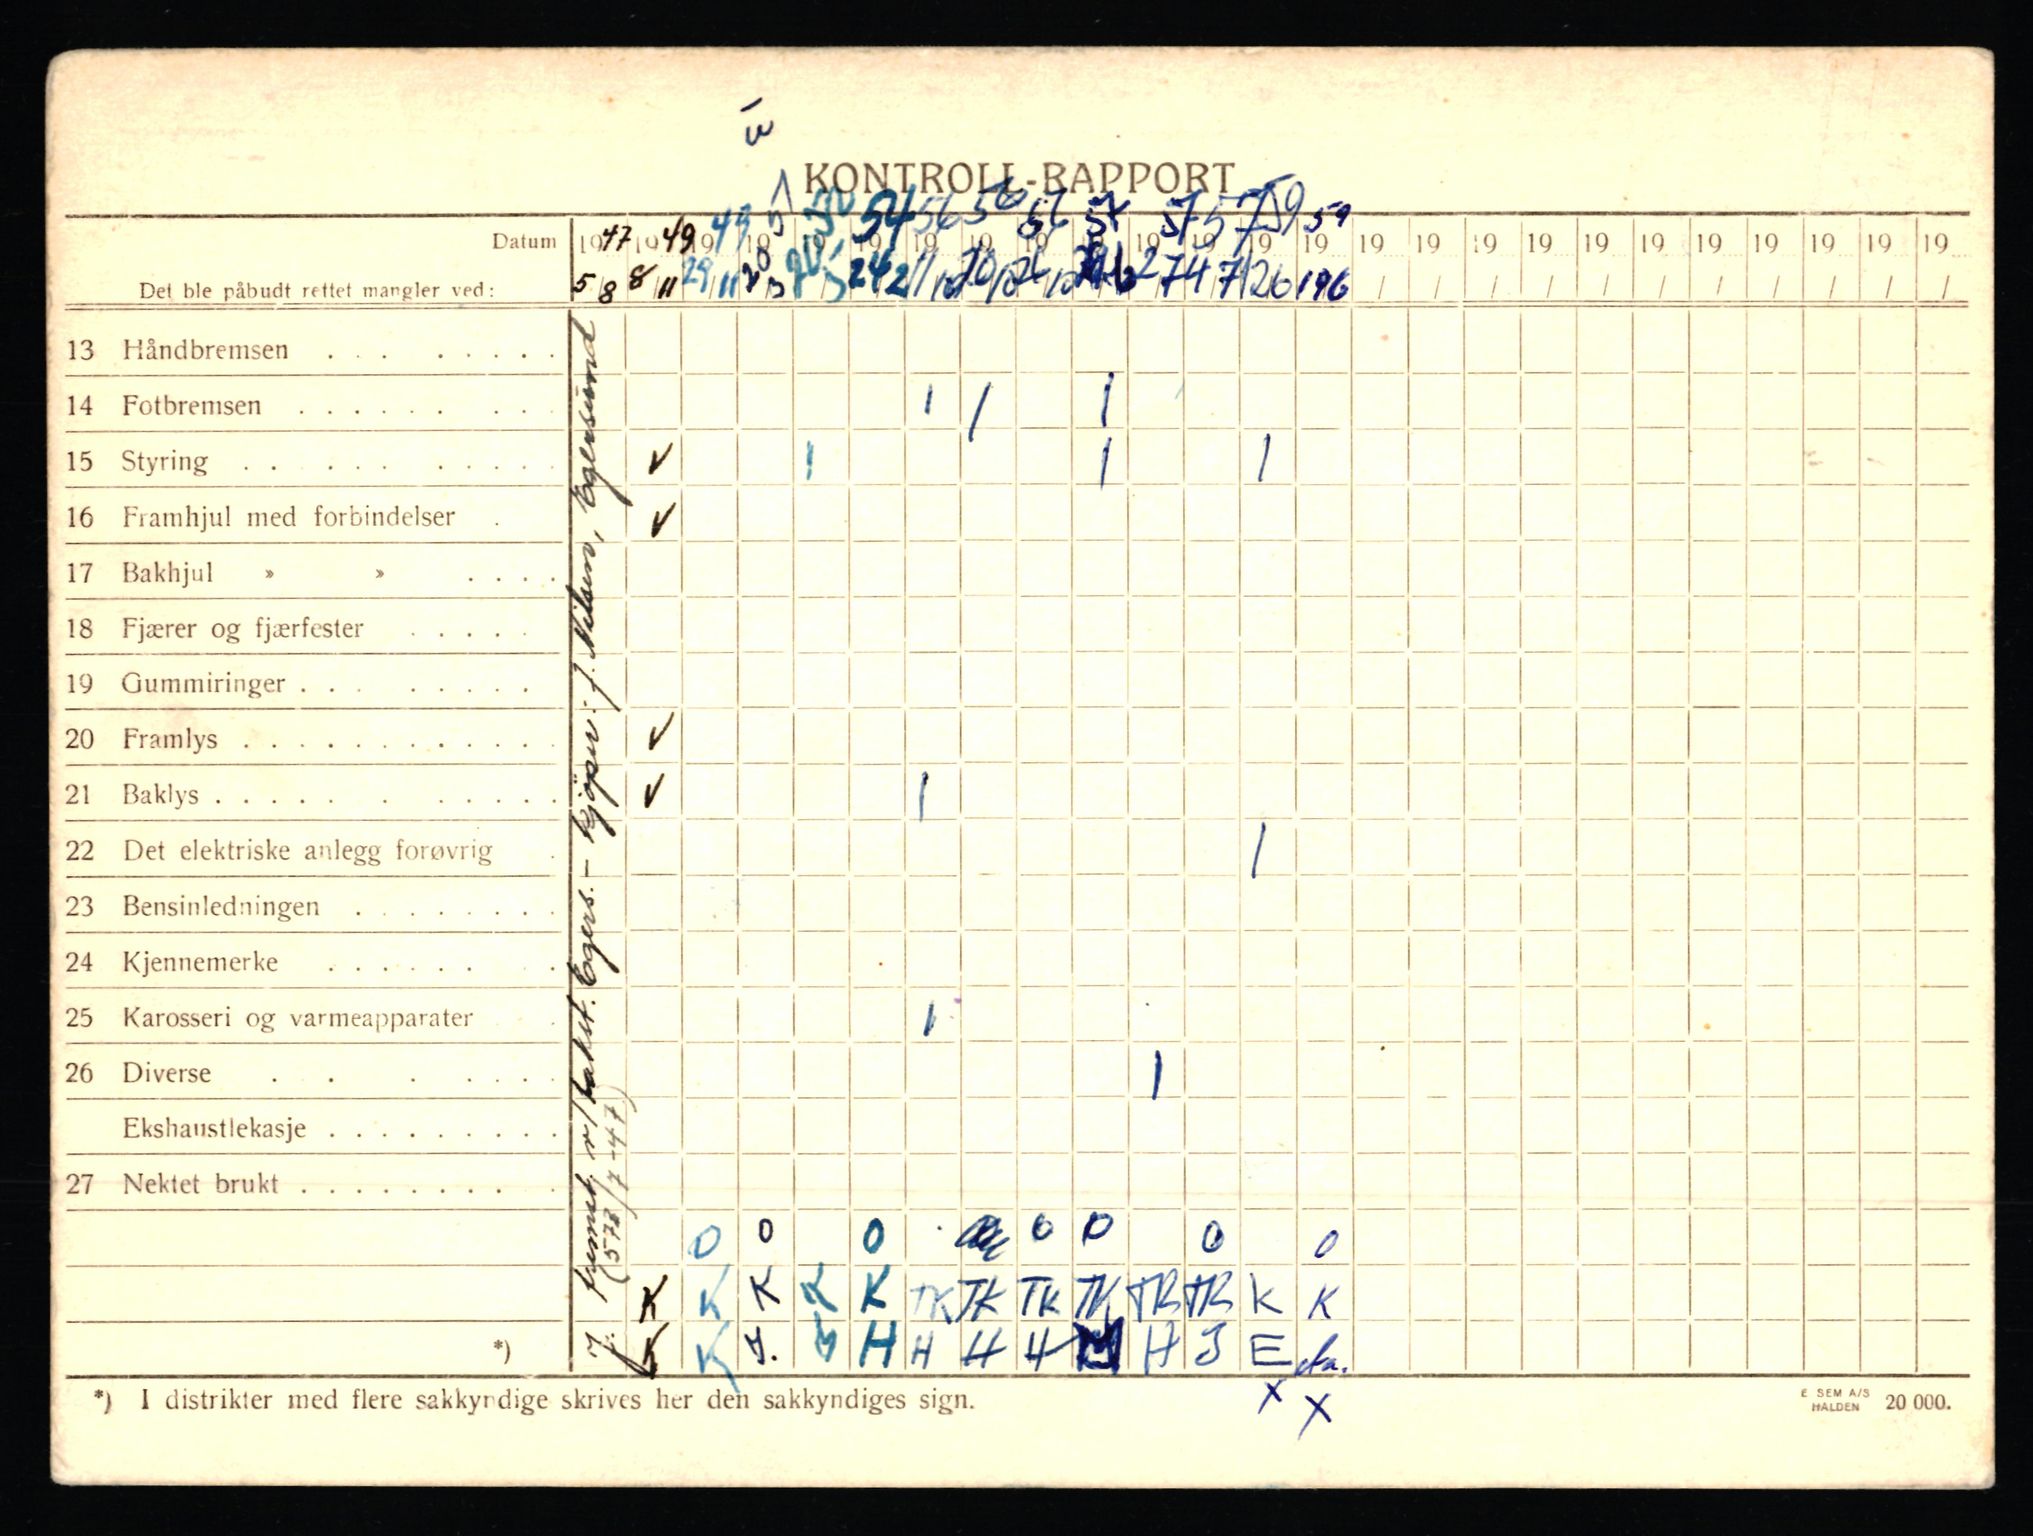 KONTROLL-RAPPORT
Datum 1947 1949 1949 19 19 1954 1956 1956 1956 1957 1957 1957 1959 1959 19 19 19 19 19 19 19 19 19 19 19
Det ble påbudt rettet mangler ved: 5/8 8/11 29/11 20/3 24/2 11/10 20/10 26/10 2/7 4/7 12/6 19/6 / / / / / / / / / / /
13 Håndbremsen
14 Fotbremsen 1 1 1
15 Styring V 1 1 1
16 Framhjul med forbindelser V
17 Bakhjul » »
18 Fjærer og fjærfester
19 Gummiringer
20 Framlys V
21 Baklys V 1
22 Det elektriske anlegg forøvrig 1
23 Bensinledningen
24 Kjennemerke
25 Karosseri og varmeapparater 1
26 Diverse 1
Ekshaustlekasje
27 Nektet brukt
O O O O O O O
K K K K K TK TK TK TK TR TR K K
*) K K J. H H H H H J E
x x
J. fremst. v/ takst. Egers. - Kjöper: J. Nilsen, Egersund
(578/7-47)
*) I distrikter med flere sakkyndige skrives her den sakkyndiges sign.
E SEM A/S
HALDEN 20 000.